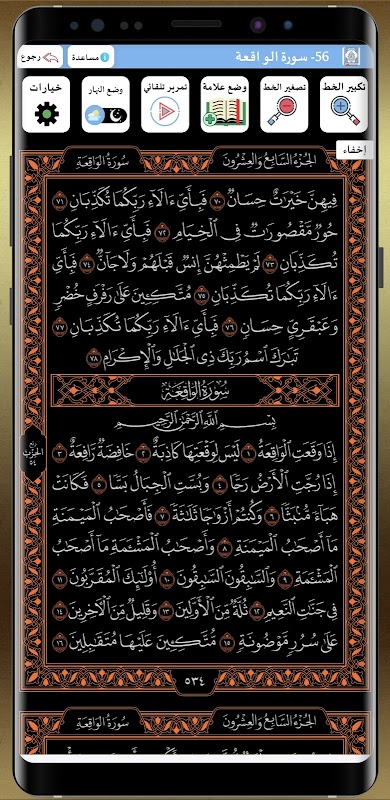 56- سورة الواقعة
مساعدة
رجوع
تكبير الخط
تصغير الخط
وضع علامة
تمرير تلقائي
وضع النهار
خيارات
إخفاء
الجزء السابع والعشرون
سورة الواقعة
فِيهِنَّ خَيْرَٰتٌ حِسَانٌ ٧٠ فَبِأَيِّ ءَالَآءِ رَبِّكُمَا تُكَذِّبَانِ ٧١
حُورٌ مَّقْصُورَٰتٌ فِي الْخِيَامِ ٧٢ فَبِأَيِّ ءَالَآءِ رَبِّكُمَا
تُكَذِّبَانِ ٧٣ لَمْ يَطْمِثْهُنَّ إِنسٌ قَبْلَهُمْ وَلَا جَآنٌّ ٧٤ فَبِأَيِّ
ءَالَآءِ رَبِّكُمَا تُكَذِّبَانِ ٧٥ مُتَّكِـِٔينَ عَلَىٰ رَفْرَفٍ خُضْرٍ
وَعَبْقَرِيٍّ حِسَانٍ ٧٦ فَبِأَيِّ ءَالَآءِ رَبِّكُمَا تُكَذِّبَانِ ٧٧
تَبَٰرَكَ ٱسْمُ رَبِّكَ ذِي ٱلْجَلَٰلِ وَٱلْإِكْرَامِ ٧٨
سُورَةُ الْوَاقِعَةِ
بِسْمِ ٱللَّهِ ٱلرَّحْمَٰنِ ٱلرَّحِيمِ
إِذَا وَقَعَتِ ٱلْوَاقِعَةُ ١ لَيْسَ لِوَقْعَتِهَا كَاذِبَةٌ ٢ خَافِضَةٌ رَّافِعَةٌ ٣
إِذَا رُجَّتِ ٱلْأَرْضُ رَجًّا ٤ وَبُسَّتِ ٱلْجِبَالُ بَسًّا ٥ فَكَانَتْ
هَبَآءً مُّنۢبَثًّا ٦ وَكُنتُمْ أَزْوَٰجًا ثَلَٰثَةً ٧ فَأَصْحَٰبُ ٱلْمَيْمَنَةِ
مَآ أَصْحَٰبُ ٱلْمَيْمَنَةِ ٨ وَأَصْحَٰبُ ٱلْمَشْـَٔمَةِ مَآ أَصْحَٰبُ
ٱلْمَشْـَٔمَةِ ٩ وَٱلسَّٰبِقُونَ ٱلسَّٰبِقُونَ ١٠ أُو۟لَٰٓئِكَ ٱلْمُقَرَّبُونَ ١١
فِي جَنَّٰتِ ٱلنَّعِيمِ ١٢ ثُلَّةٌ مِّنَ ٱلْأَوَّلِينَ ١٣ وَقَلِيلٌ مِّنَ ٱلْءَاخِرِينَ ١٤
عَلَىٰ سُرُرٍ مَّوْضُونَةٍ ١٥ مُّتَّكِـِٔينَ عَلَيْهَا مُتَقَٰبِلِينَ ١٦
٥٣٤
الجزء السابع والعشرون
سورة الواقعة